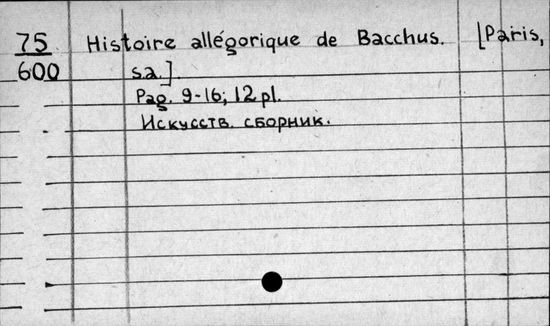 75 Histoire allégorique de Bacchus. [Paris,
600 s.a.].
Pag. 9-16; 12 pl.
Искусств. сборник.